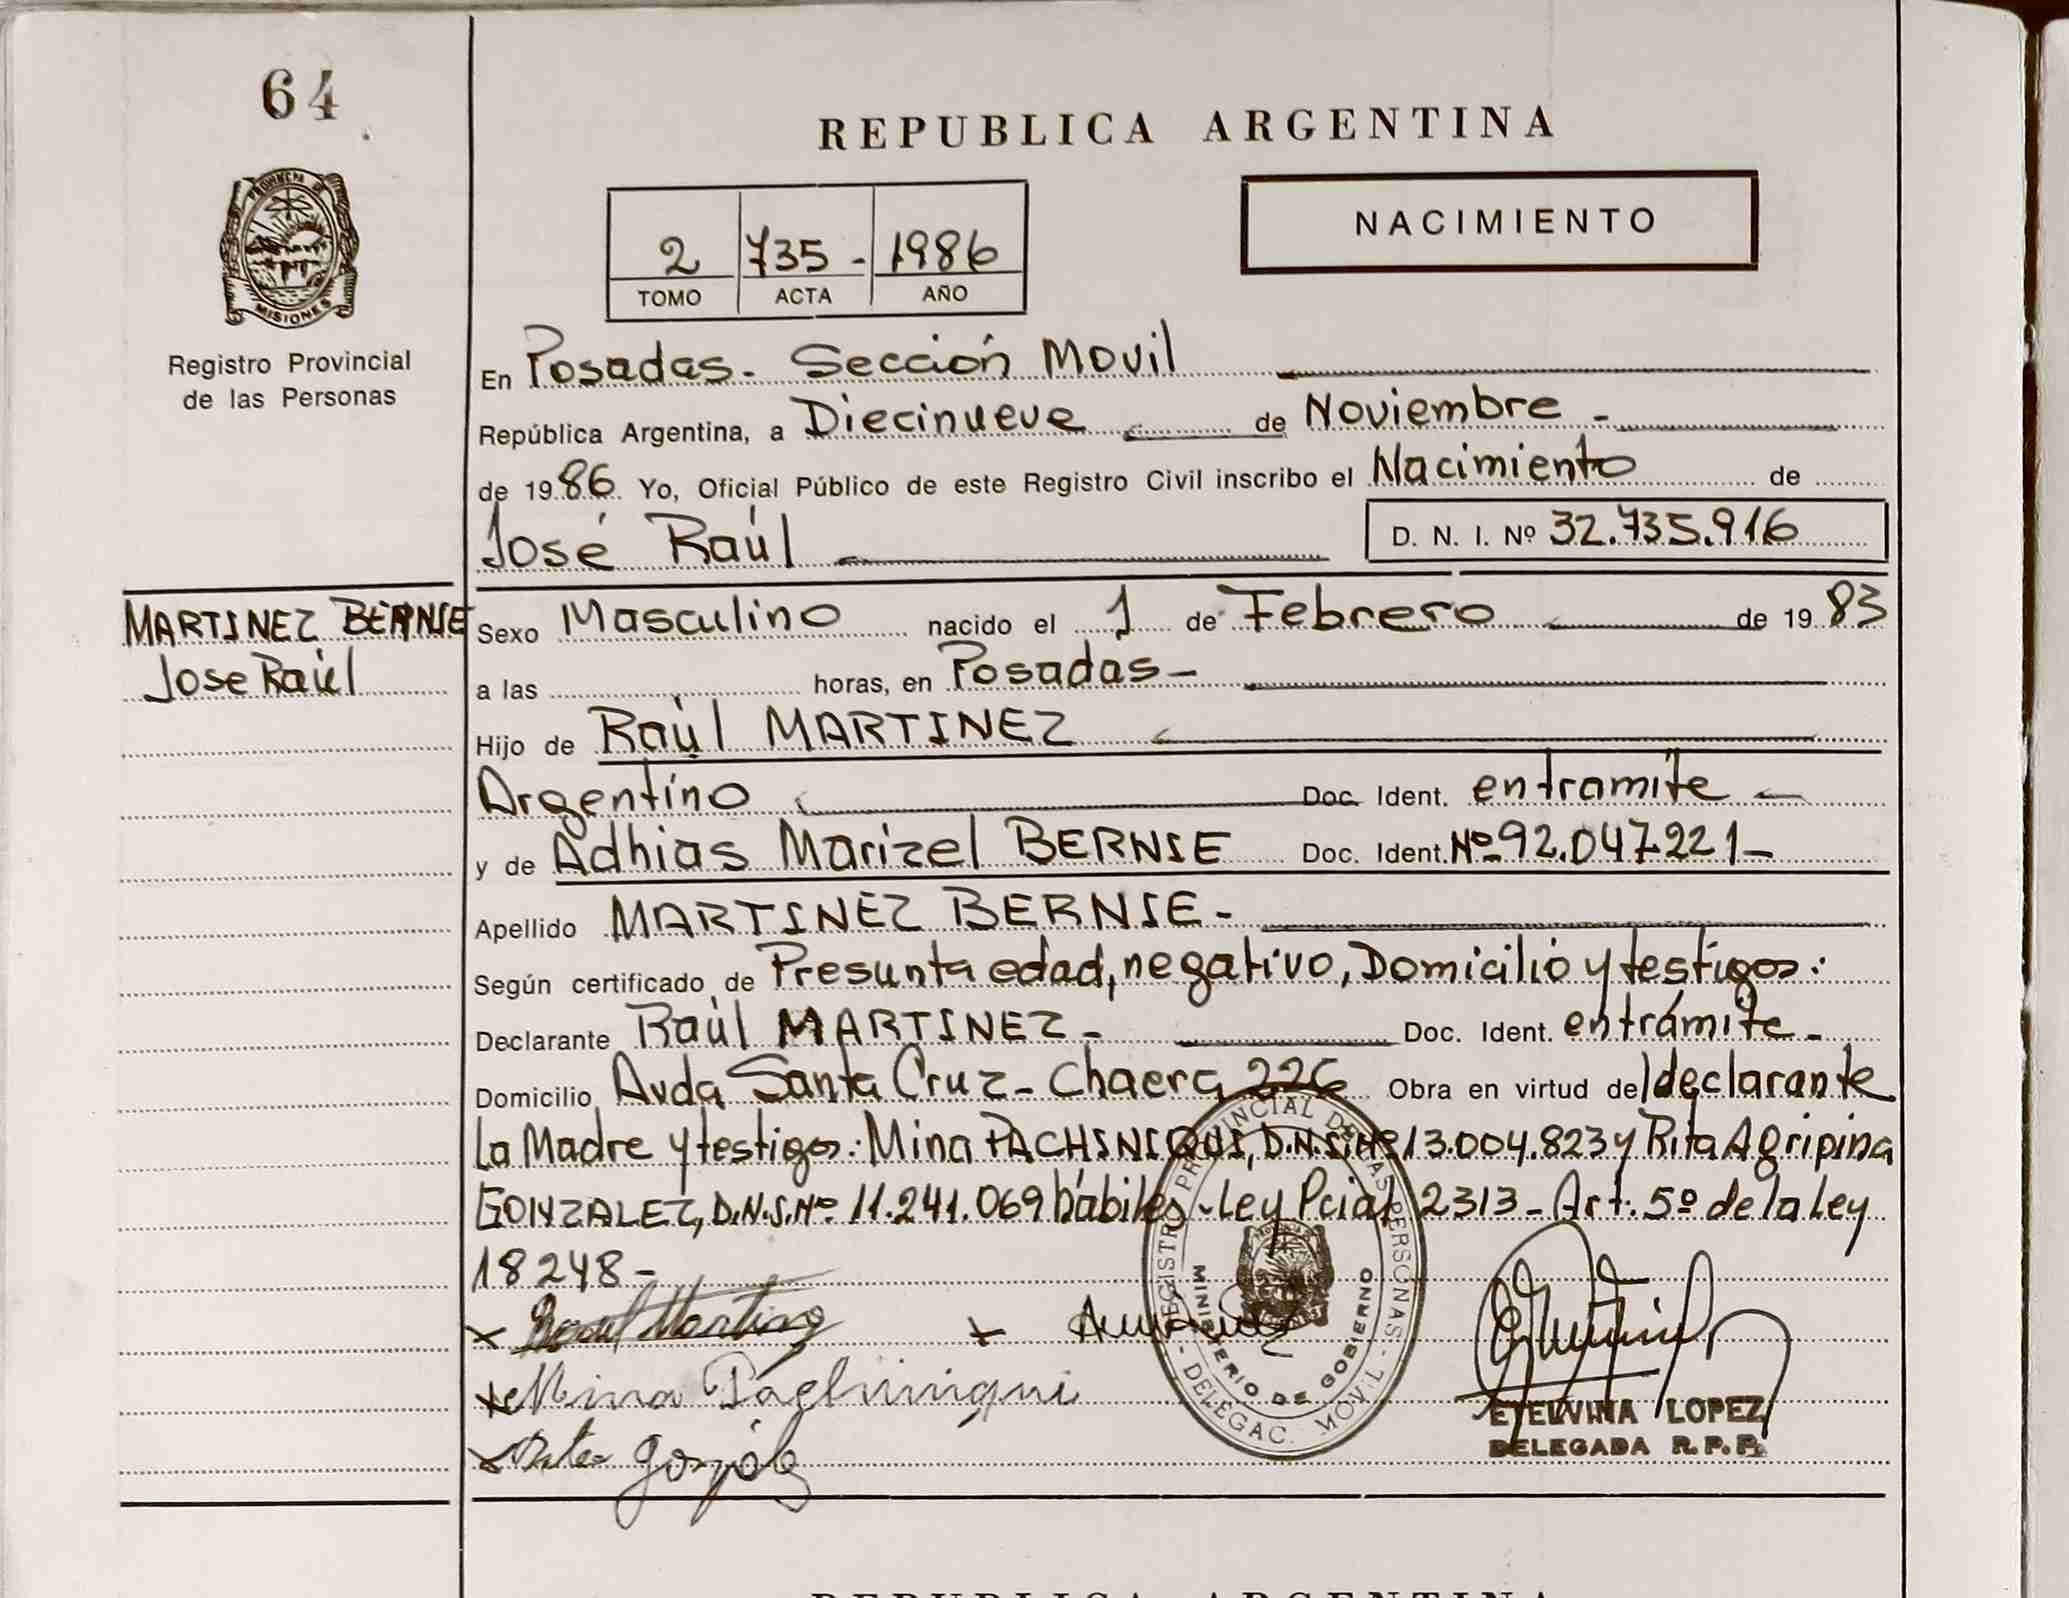 64
REPUBLICA ARGENTINA
PROVINCIA DE
MISIONES
Registro Provincial
de las Personas
2 735- 1986
TOMO ACTA AÑO
NACIMIENTO
En Posadas. Sección Movil
República Argentina, a Diecinueve de Noviembre -
de 1986 Yo, Oficial Público de este Registro Civil inscribo el Nacimiento de
José Raúl D. N. I. Nº 32.735.916
MARTINEZ BERNIE
Jose Raúl
Sexo Masculino nacido el 1 de Febrero de 1983
a las horas, en Posadas-
Hijo de Raúl MARTINEZ
Argentino Doc. Ident. en tramite -
y de Adhias Marizel BERNIE Doc. Ident. Nº 92.047.221-
Apellido MARTINEZ BERNIE-
Según certificado de Presunta edad, negativo, Domicilio y testigos:
Declarante Raúl MARTINEZ- Doc. Ident. en trámite-
Domicilio Avda Santa Cruz- Chacra 226 Obra en virtud del declarante
La Madre y testigos: Mina D.N.I. Nº 13.004.823 y Rita Agripina
GONZALEZ, D.N.I. Nº 11.241.069 hábiles - Ley Pcial 2313 - Art. 5º de la Ley
18248-
REGISTRO PROVINCIAL DE LAS PERSONAS - DELEGAC. MOVIL -
MINISTERIO DE GOBIERNO
Raul Martinez
Mina
ETELVINA LOPEZ
DELEGADA R.P.P.
REPUBLICA ARGENTINA